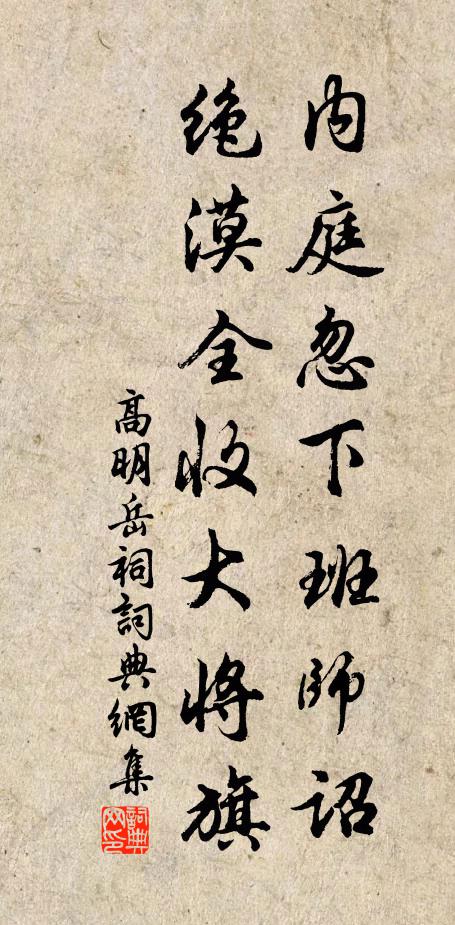 内庭忽下班師詔
絶漠全收大将旗
高明岳祠詞典網集
詞典網印